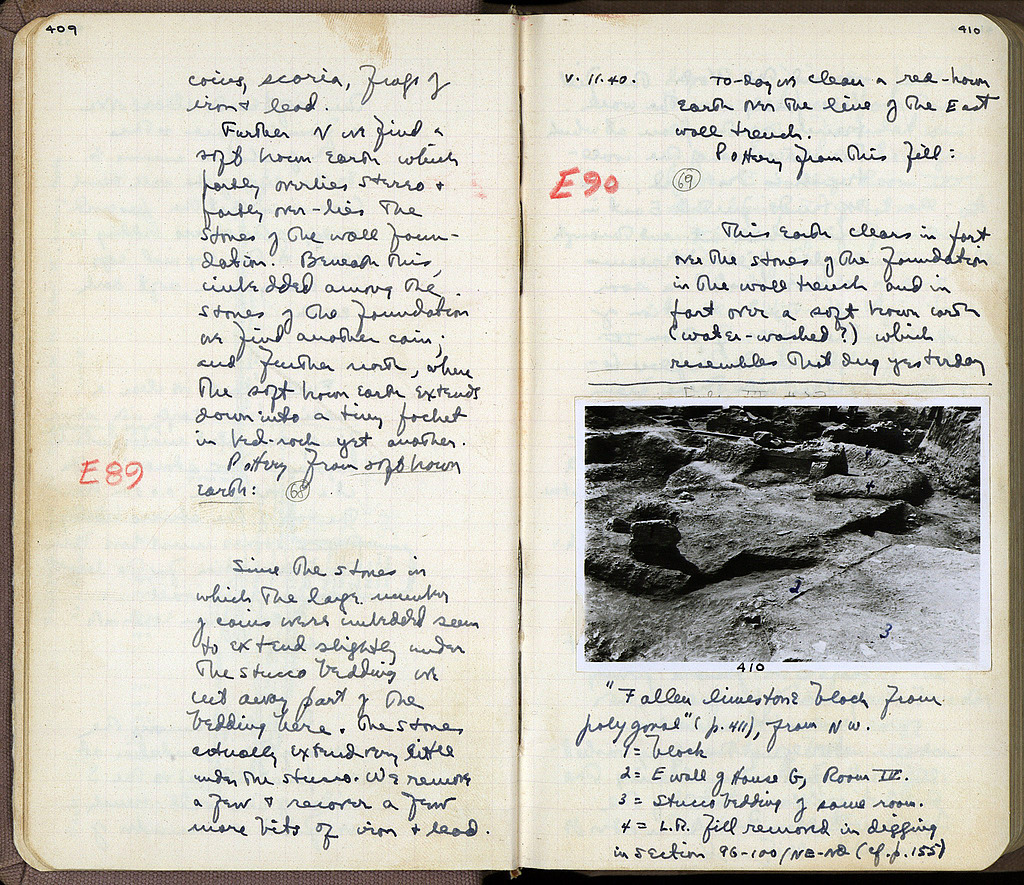 409
coins, scoria, frags of
iron & lead.
Further N we find a
soft brown earth which
partly overlies stereo &
partly over-lies the
stones of the wall foun-
dation. Beneath this,
imbedded among the
stones of the foundation
we find another coin;
and further north, where
the soft brown earth extends
down into a tiny pocket
in bed-rock yet another.
Pottery from soft brown
E89
earth: 68
Since the stones in
which the large number
of coins were imbedded seem
to extend slightly under
the stucco bedding we
cut away part of the
bedding here. The stones
actually extend very little
under the stucco. We remove
a few & recover a few
more bits of iron & lead.
410
V. 11.40. To-day we clean a red-brown
earth over the line of the East
wall trench.
Pottery from this fill:
E90 69
This earth clears in part
over the stones of the foundation
in the wall trench and in
part over a soft brown earth
(water-washed?) which
resembles that dug yesterday
4
2
3
410
"Fallen limestone block from
polygonal" (p. 411), from NW.
1 = block
2 = E wall of House G, Room III.
3 = Stucco bedding of same room.
4 = L.R. fill removed in digging
in section 96-100/ΝΕ-ΝΘ (cf. p. 155)